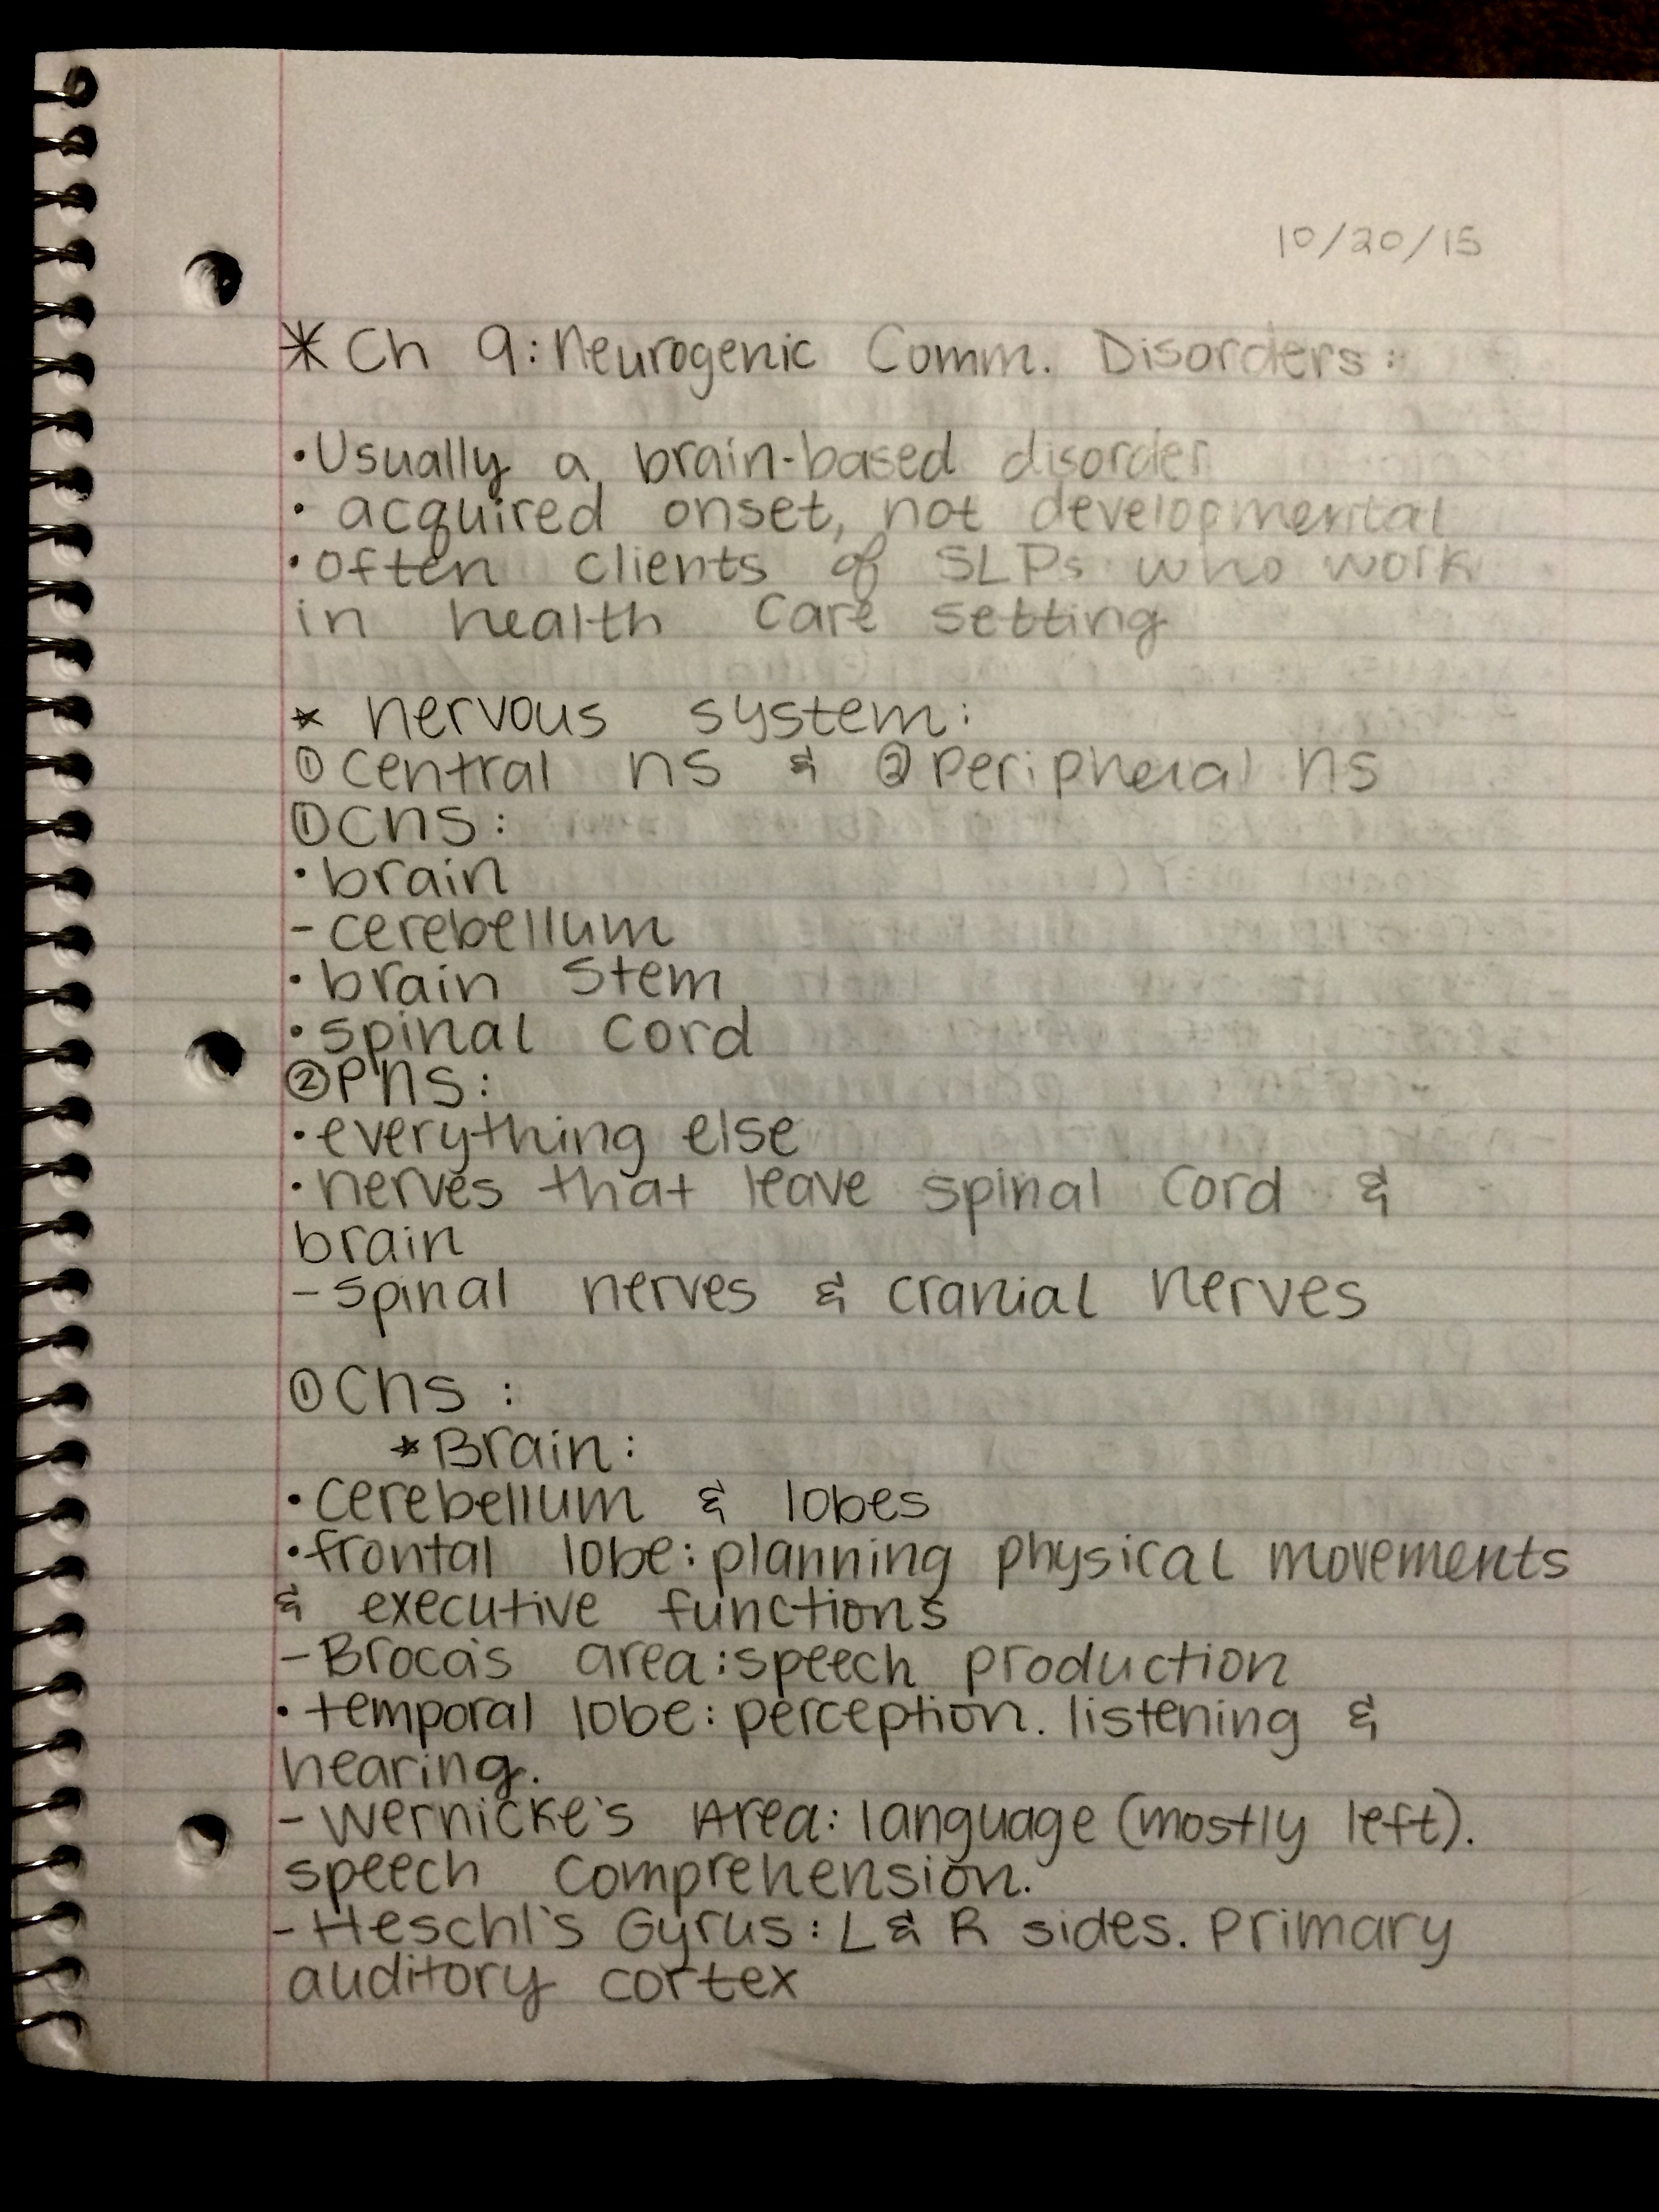 10/20/15
* Ch 9: Neurogenic Comm. Disorders:
• Usually a brain-based disorder
• acquired onset, not developmental
• often clients of SLPs who work
in health care setting
* nervous system:
① central ns & ② peripheral ns
① CNS:
• brain
- cerebellum
• brain stem
• spinal cord
② PNS:
• everything else
• nerves that leave spinal cord &
brain
- spinal nerves & cranial nerves
① CNS :
* Brain:
• cerebellum & lobes
• frontal lobe: planning physical movements
& executive functions
- Broca's area: speech production
• temporal lobe: perception. listening &
hearing.
- Wernicke's Area: language (mostly left).
speech comprehension.
- Heschl's Gyrus: L & R sides. Primary
auditory cortex